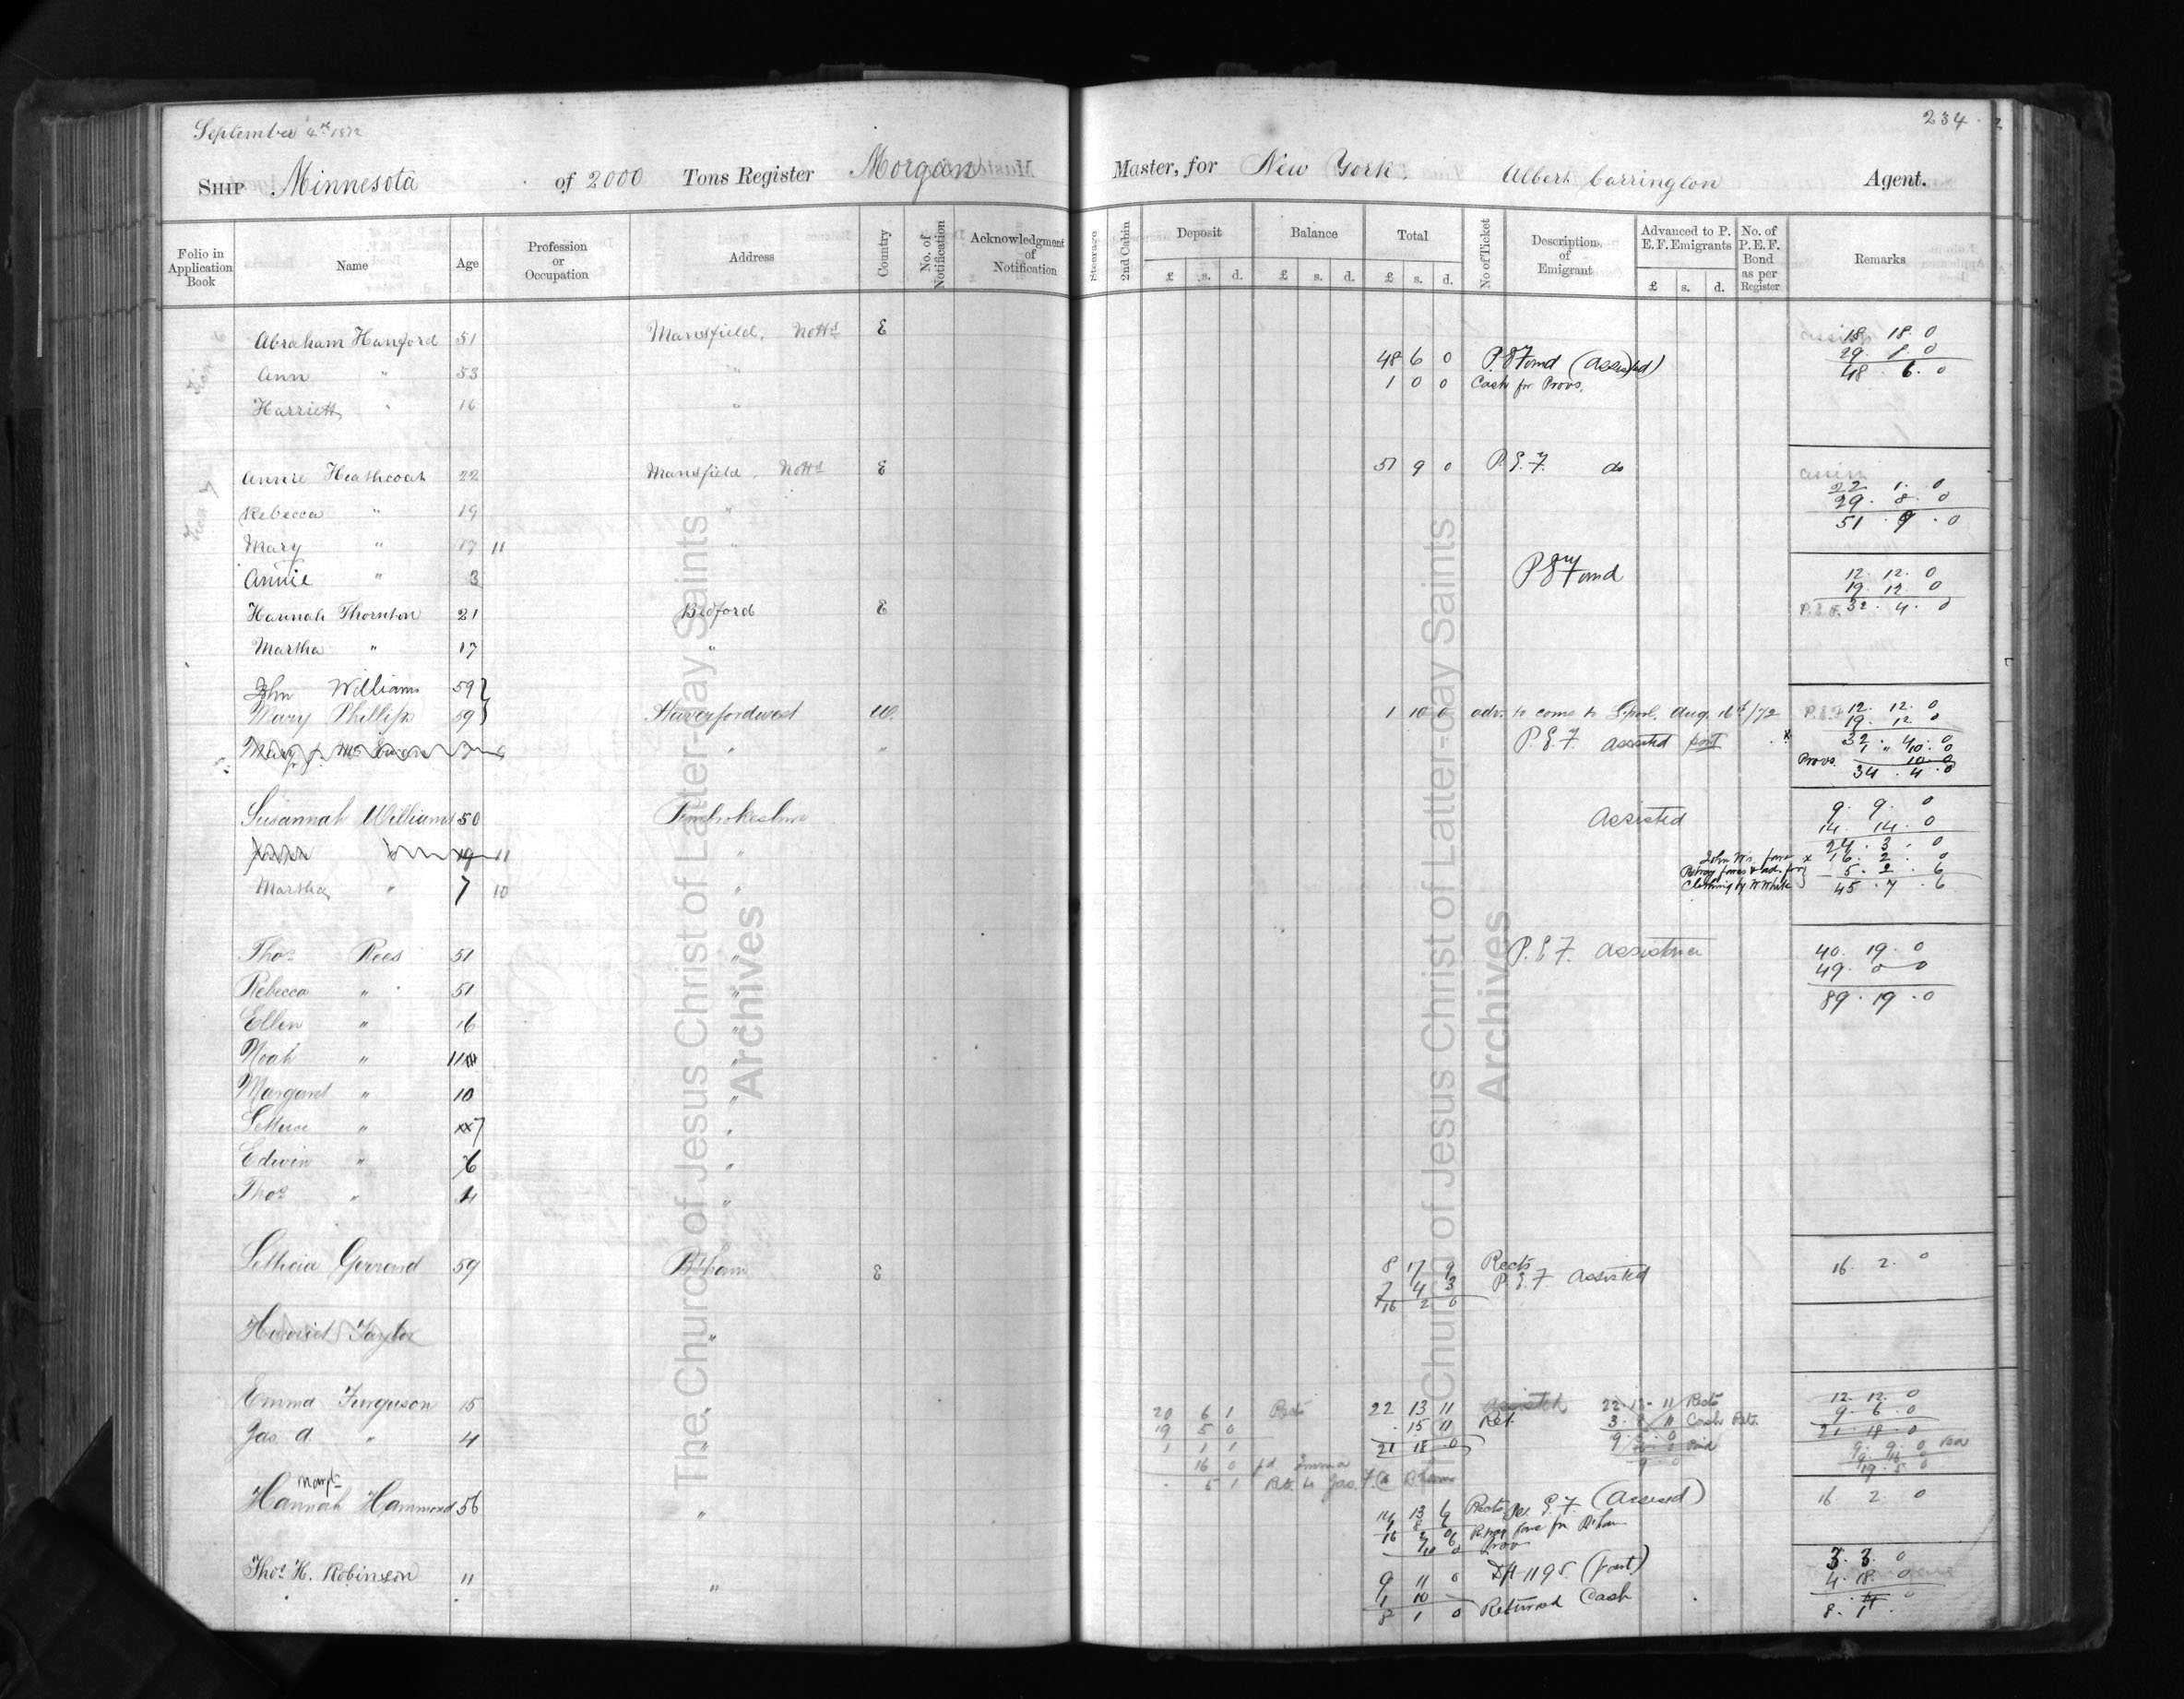 September 4th 1872
234
SHIP Minnesota of 2000 Tons Register Morgan Master, for New York. Albert Carrington Agent.
Folio in Application Book
Name
Age
Profession or Occupation
Address
Country
No. of Notification
Acknowledgment of Notification
Steerage
2nd Cabin
Deposit
£ s. d.
Balance
£ s. d.
Total
£ s. d.
No of Ticket
Description of Emigrant
Advanced to P. E.F. Emigrants
£ s. d.
No. of P.E.F. Bond as per Register
Remarks
Abraham Hanford 51 Mansfield, Notts E 18 18. 0
29. 8. 0
48 6 0 P.E. Fund (Assisted) 48. 6. 0
Ann " 53 "
1 0 0 Cash for Provs.
Harriett " 16 "
Annie Heathcoat 22 Mansfield, Notts E 51 9 0 P.E.F. do
22 1. 0
29. 8. 0
Rebecca " 19 " 51. 9. 0
Mary " 17 11 "
Annie " 3 12. 12. 0
19 12 0
Hannah Thornton 21 Bedford E P.E.F. 32. 4. 0
Martha " 17 "
John Williams 59
Mary Phillips 59 Haverfordwest W. 1 10 0 adv. to come to Lpool. Aug. 16th/72 12. 12. 0
19. 12 0
P.E.F. Assisted part 32. 4. 0
" "
Provs. 10. 0
34. 4. 0
Susannah Williams 50 Pembrokeshire Assisted 9. 9. 0
14. 14. 0
24. 3. 0
11 " 16. 2. 0
5. 2. 6
Martha " 7 10 " Clothing by W White 45. 7. 6
Thos Rees 51 " P.E.F. Assistance 40. 19. 0
49. 0 0
Rebecca " 51 " 89. 19. 0
Ellen " 16 "
Noah " 11 "
Margaret " 10 "
Lettice " 7 "
Edwin " 6 "
Thos " 4 "
Letticia Gerrard 59 B'ham E 8 17 9 Rects 16. 2. 0
7 4 3 P.E.F. Assisted
16 2 0
Harriet Taylor "
Emma Ferguson 15 " 20 6 1 Rects 22 13 11 Assisted 22.13.11 Rects 12. 12. 0
19 5 0 . 15 11 Ret. Cash Ret. 9. 6. 0
Jas. A. " 4 " 1 1 1 21 18 0 21. 18. 0
16 0 pd Emma
5 1
Margt
Hannah Hammond 56 " 16 2 0
(Assisted)
Thos H. Robinson 11 " 9 11 0 (part) 3. 3. 0
4. 18. 0
1 10 Returned Cash
8 1 0 8. 1.
The Church of Jesus Christ of Latter-day Saints
Archives
The Church of Jesus Christ of Latter-day Saints
Archives